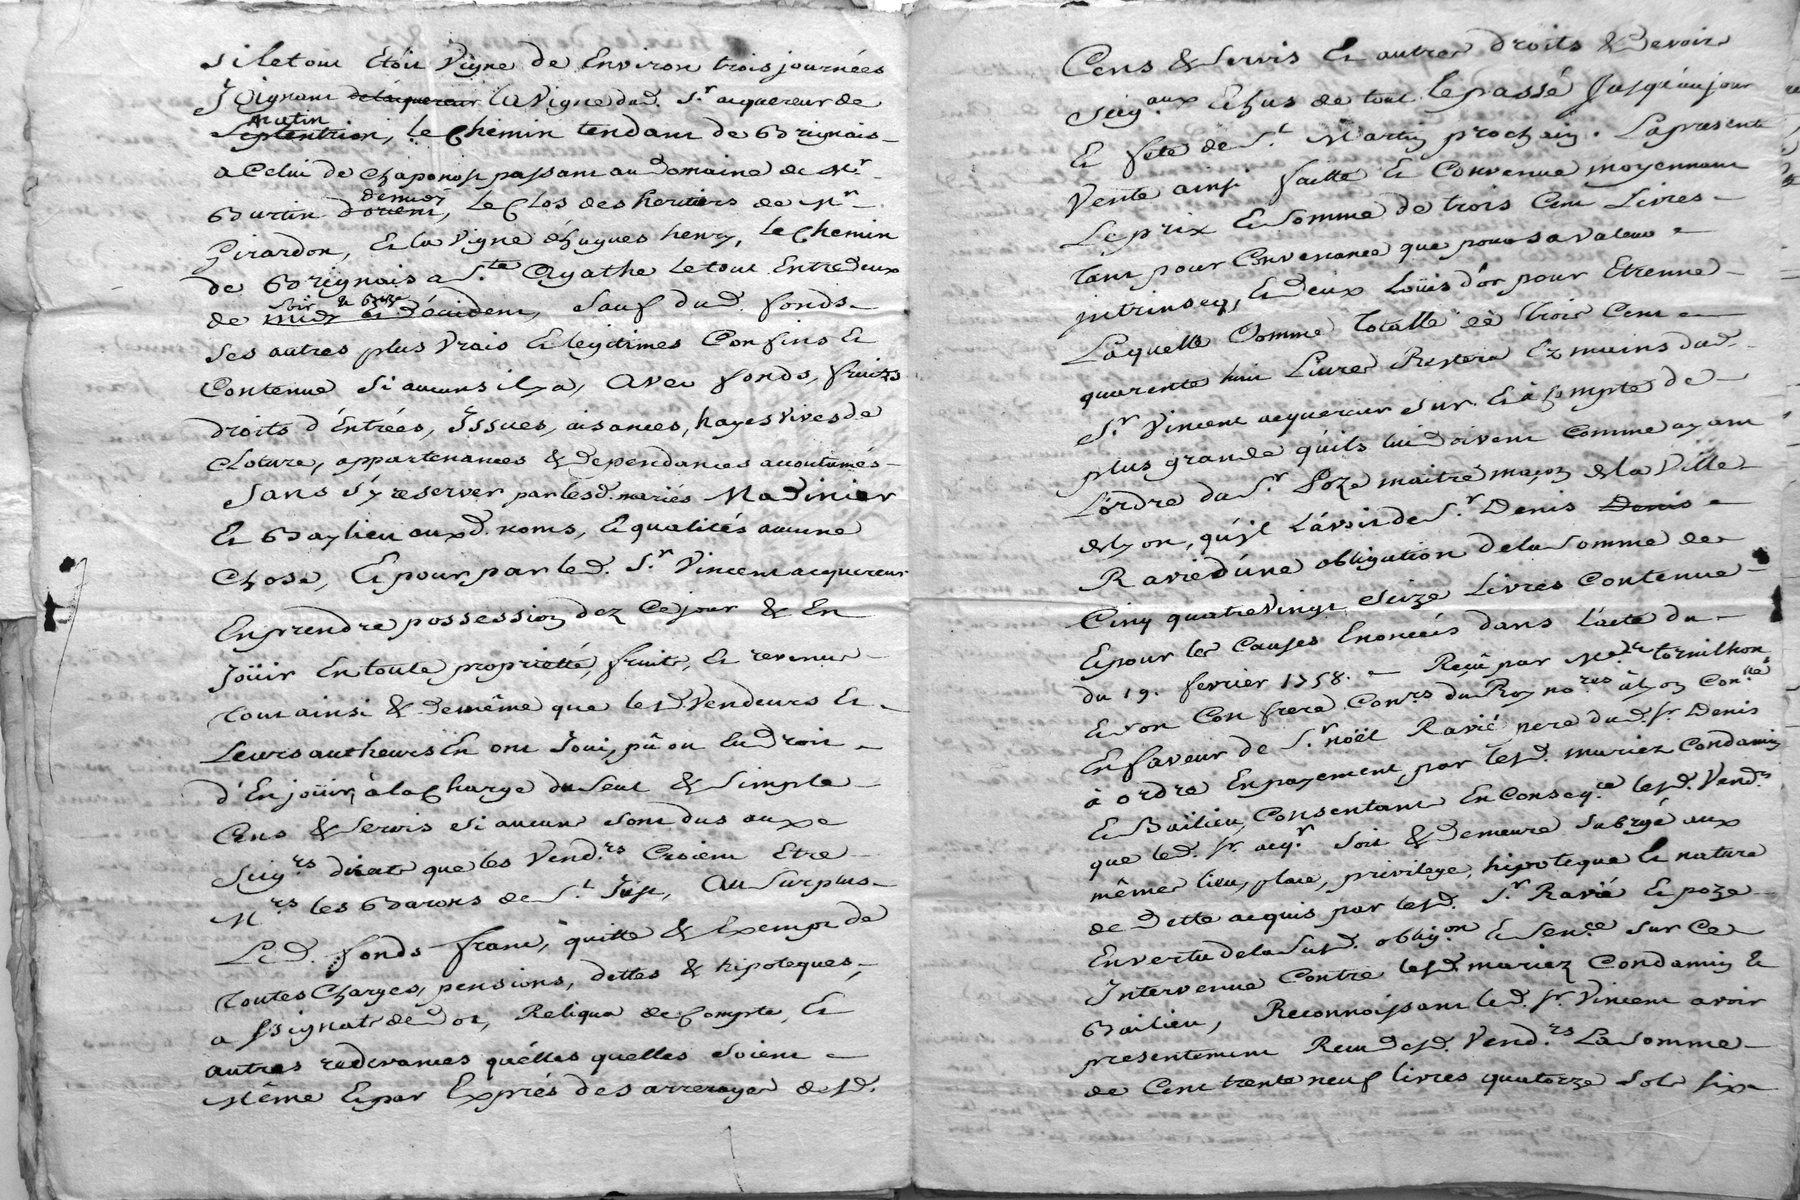 si le tout Etoit Vigne de Environ trois journées
Joignant de lacquereur la Vigne dud. Sr. acquereur de
matin
Septentrion, le Chemin tendant de Brignais
a Celui de Chaponost passant au Domaine de Mr.
Burtin d'orient, le Clos des heritiers de Mr.
Girardon, Et la Vigne d'hugues henry, le Chemin
de Brignais a Ste. Agathe le tout Entre deux
soir & bize
de midy et d'occident, Sauf dud. fonds
Ses autres plus Vrais Et legitimes Confins Et
Contenue Si aucuns il y a, Avec fonds, fruits
droits d'Entrées, Issues, aisances, hayes Vives de
Cloture, appartenances & dependances accoutumés
Sans S'y reserver par lesd. mariés Madinier
Et Baylieu auxd. noms, Et qualités aucune
Chose, Et pour par led. Sr. Vincent acquereur
En prendre possession dez Ce jour & En
Joüir En toute proprietté, fruits, Et revenus
tout ainsi & de même que lesd. Vendeurs Et
Leurs autheurs En ont Joui, pû ou Eu droit
d'En joüir, à la Charge du Seul & Simple
Cens & Servis Si aucuns Sont dus aux
Seigrs. directs que les Vendrs. Croient Etre
Mrs. les Barons de St. Just, Au Surplus
Led. fonds franc, quitte & Exempt de
toutes Charges, pensions, dettes & hipoteques,
assignats de dot, Reliqua de Compte, Et
autres redevances quélles quelles Soient
Même Et par Exprés des arrerages desd.
Cens & Servis Et autres droits & Devoirs
Seigaux. Echus de tout le passé Jusqu'au jour
Et fete de St. Martin prochain. La presente
Vente ainsi faitte Et Convenue moyennant
Le prix Et Somme de trois Cent Livres
tant pour Convenance que pour sa valeur
intrinseq, Et deux Loüis d'or pour Etrenne
Laquelle Somme Totalle de trois Cent
quarente huit Livres Restera Ez mains dud.
Sr. Vincent acquereur Sur Et à Compte de
plus grande qu'ils lui doivent Comme ayant
L'ordre du Sr. Poze maitre maçon de la Ville
de Lyon, qu'il L'avoit de Sr. Denis Denis
Ravié d'une obligation de la Somme de
Cinq quatre Vingt Seize Livres Contenue
Et pour les Causes Enoncées dans L'acte du
du 19. fevrier 1758. Reçû par Me. tornilhon
Et son Confrere Conrs. du Roy nores. à Lyon
En faveur de Sr. noël Ravié, pere dud. Sr. Denis
à ordre En payement, par lesd. mariez Condamin
Et Bailieu, Consentant En Conseqce. lesd. Vendrs.
que led. Sr. acqr. Soit & Demeure Subrogé aux
mêmes lieu, place, privilege, hipoteque Et nature
de Dette acquis par lesd. Sr. Ravié Et poze
En vertu de la Susd. obligon. Et Sence. Sur Ce
Intervenue Contre lesd. mariez Condamin Et
Bailieu, Reconnoissant led. Sr. Vincent avoir
presentement Reçu desd. Vendrs. La Somme
de Cent trente neuf livres quatorze Sols Six